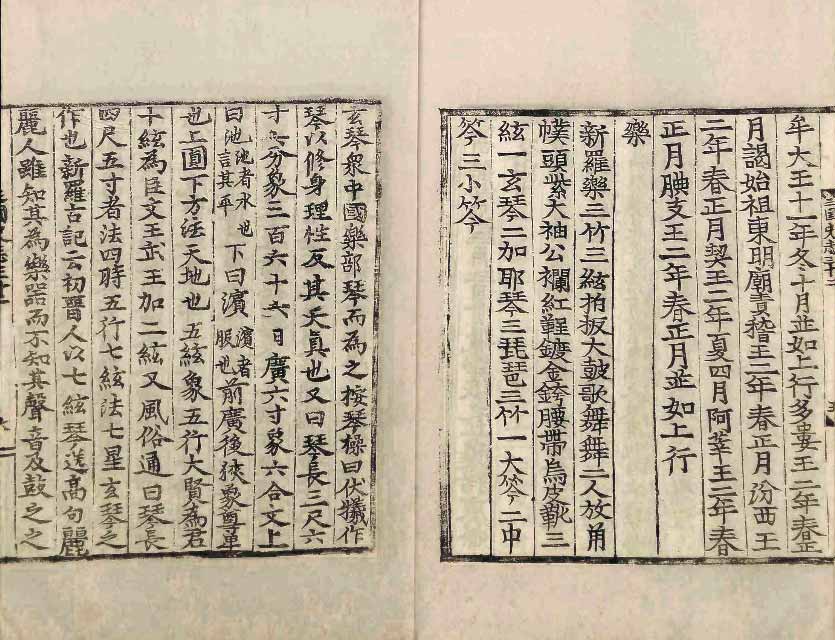 牟大王十一年冬十月並如上行多婁王二年春正
月謁始祖東明廟責稽王二年春正月汾西王
二年春正月契王二年夏四月阿莘王二年春
正月腆支王二年春正月並如上行
樂
新羅樂三竹三絃拍板大鼓歌舞舞二人放角
幞頭紫大袖公襴紅鞓鍍金銙腰帶烏皮靴三
絃一玄琴二加耶琴三琵琶三竹一大笒二中
笒三小笒
玄琴象中國樂部琴而爲之按琴操曰伏犧作
琴以修身理性反其天真也又曰琴長三尺六
寸六分象三百六十六日廣六寸象六合文上
曰池池者水也言其平下曰濱濱者服也前廣後狹象尊卑
也上圓下方法天地也五絃象五行大賢爲君
十絃爲臣文王武王加二絃又風俗通曰琴長
四尺五寸者法四時五行七絃法七星玄琴之
作也新羅古記云初晉人以七絃琴送高句麗
麗人雖知其爲樂器而不知其聲音及鼓之之